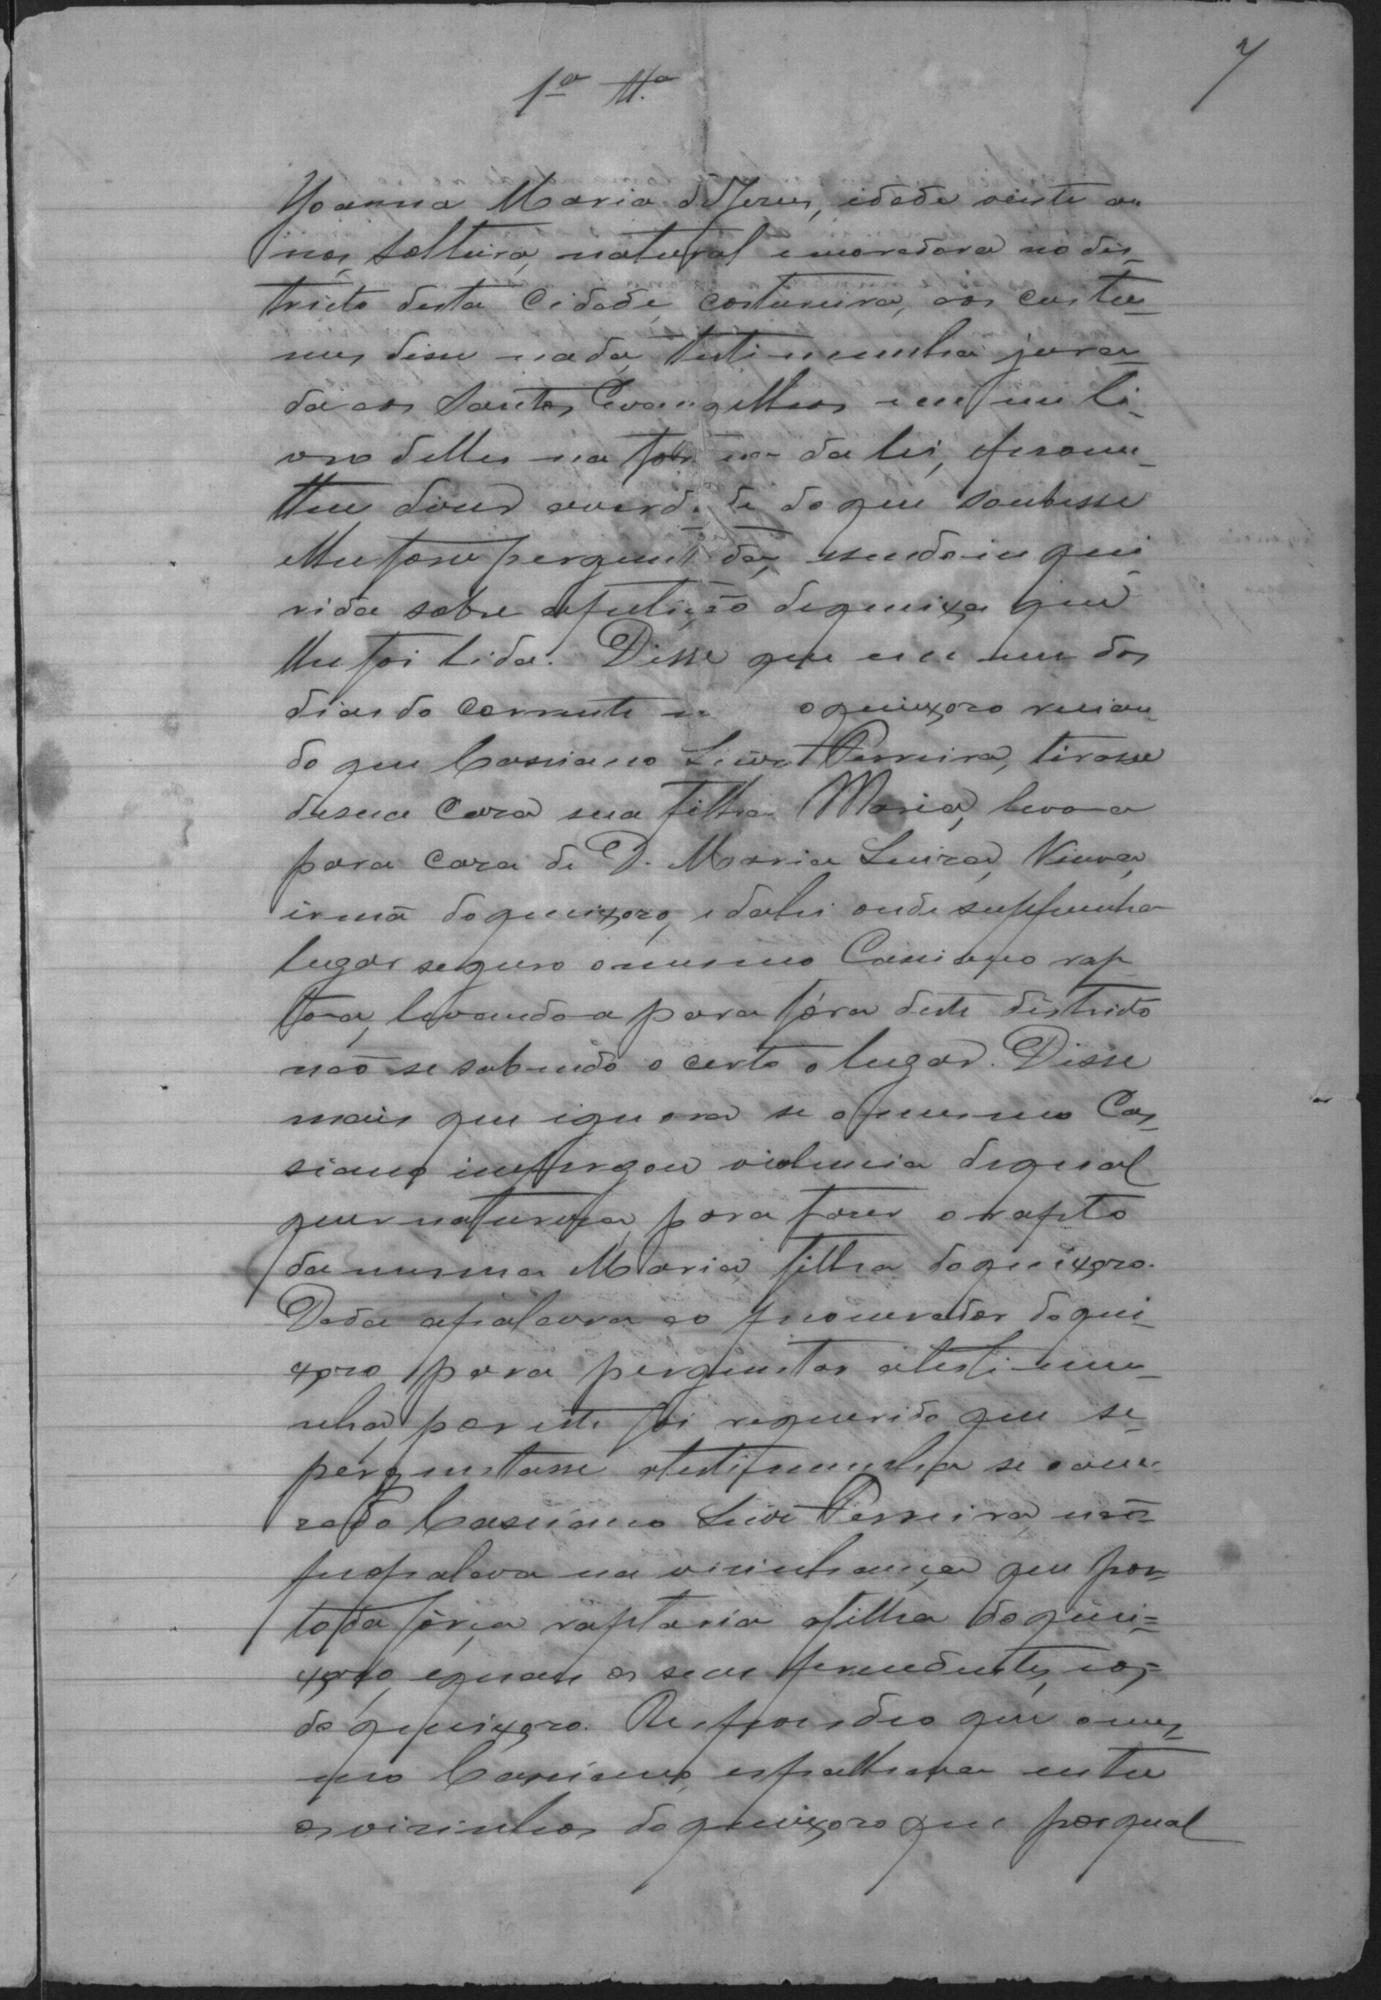 7
1ª Tª
Joanna Maria de Jesus, idade vinte an
nos, solteira, natural e moradora no dis_
tricto desta Cidade, costureira, aos costu_
mes disse nada, testimunha jura_
da aos Santos Evangelhos em um li_
vro delles na forma da lei, prome_
tteu diser averdade do que soubesse
e lhe fosse perguntado, e sendo inqui
rida sobre apetição de queixa que
lhe foi lida. Disse que em um dos
dias do corrente o queixoso recian
do que Cassiano Ferreira, tirasse
de sua Casa sua filha Maria, levou a
para casa de D. Maria Luiza, Viuva,
irmã do queixoso, e dahi onde suppunha
lugar seguro o mesmo Cassiano rap
tou a, levando a para fóra deste districto
não se sabendo o certo o lugar. Disse
mais que ignora se o mesmo Cas_
siano empregou violencia de qual
quer natureza, para faser o rapto
da mesma Maria, filha do queixoso.
Dada apalavra ao procurador do quei_
xoso para perguntar atestimu_
nha, por este foi requerido que se_
perguntasse atestimunha se o accu
sado Cassiano Ferreira, não=
propalava na visinhança que por
toda força raptaria afilha do quei=
xoso, e quaes os seus precedentes, e os=
do queixoso. Respondeo que o mes_
mo Cassiano, espalhava entre
os visinhos do queixoso que por qual